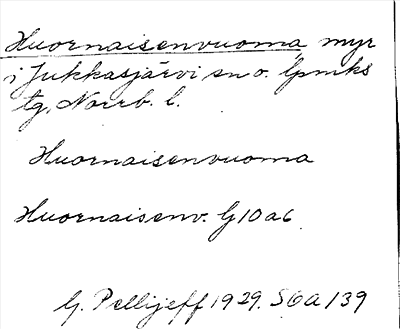 Huornaisenvuoma myr
i Jukkasjärvi sn o. lpmks
tg, Norrb. l.
Huornaisenvuoma
Huornaisenv. G 10 a 6
G. Pellijeff 1929. S 6 a 139